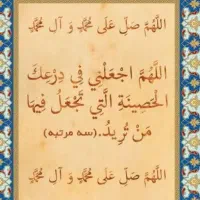 اللَّهُمَّ صَلِّ عَلَى مُحَمَّدٍ وَ آلِ مُحَمَّدٍ
اللَّهُمَّ اجْعَلْنِي فِي دِرْعِكَ
الْحَصِينَةِ الَّتِي تَجْعَلُ فِيهَا
مَنْ تُرِيدُ.(سه مرتبه)
اللَّهُمَّ صَلِّ عَلَى مُحَمَّدٍ وَ آلِ مُحَمَّدٍ